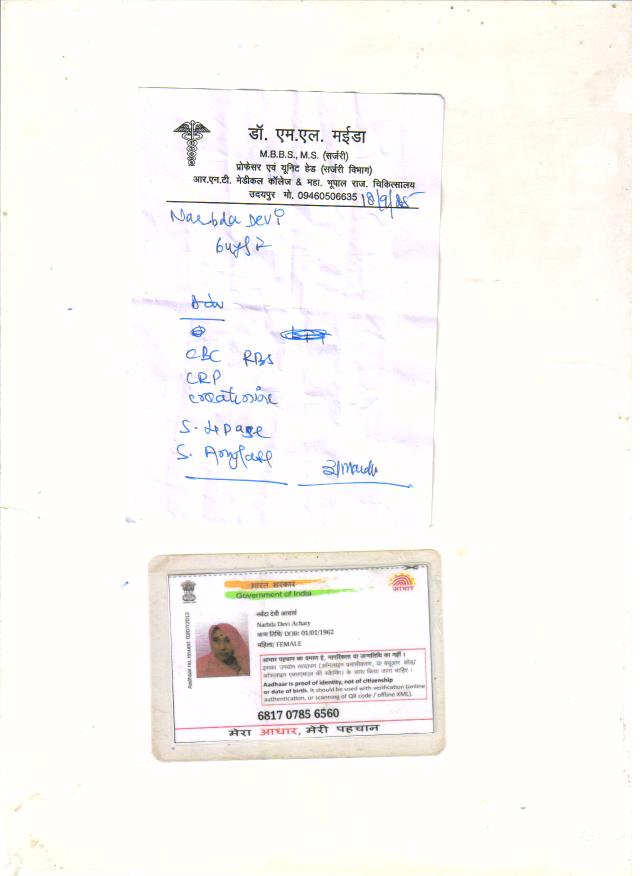 डॉ. एम.एल. मईडा
M.B.B.S., M.S. (सर्जरी)
प्रोफेसर एवं यूनिट हेड (सर्जरी विभाग)
आर.एन.टी. मेडीकल कॉलेज & महा. भूपाल राज. चिकित्सालय
उदयपुर मो. 09460506635 18/9/25
Narbda Devi
64y/F
Adv
CBC RBS
CRP
creatinine
S. Lipase
S. Amylase
भारत सरकार
Government of India
आधार
Aadhaar no. issued: 03/07/2013
नर्बदा देवी आचार्य
Narbda Devi Achary
जन्म तिथि/ DOB: 01/01/1962
महिला/ FEMALE
आधार पहचान का प्रमाण है, नागरिकता या जन्मतिथि का नहीं ।
इसका उपयोग सत्यापन (ऑनलाइन प्रमाणीकरण, या क्यूआर कोड/
ऑफलाइन एक्सएमएल की स्कैनिंग) के साथ किया जाना चाहिए ।
Aadhaar is proof of identity, not of citizenship
or date of birth. It should be used with verification (online
authentication, or scanning of QR code / offline XML).
6817 0785 6560
मेरा आधार, मेरी पहचान